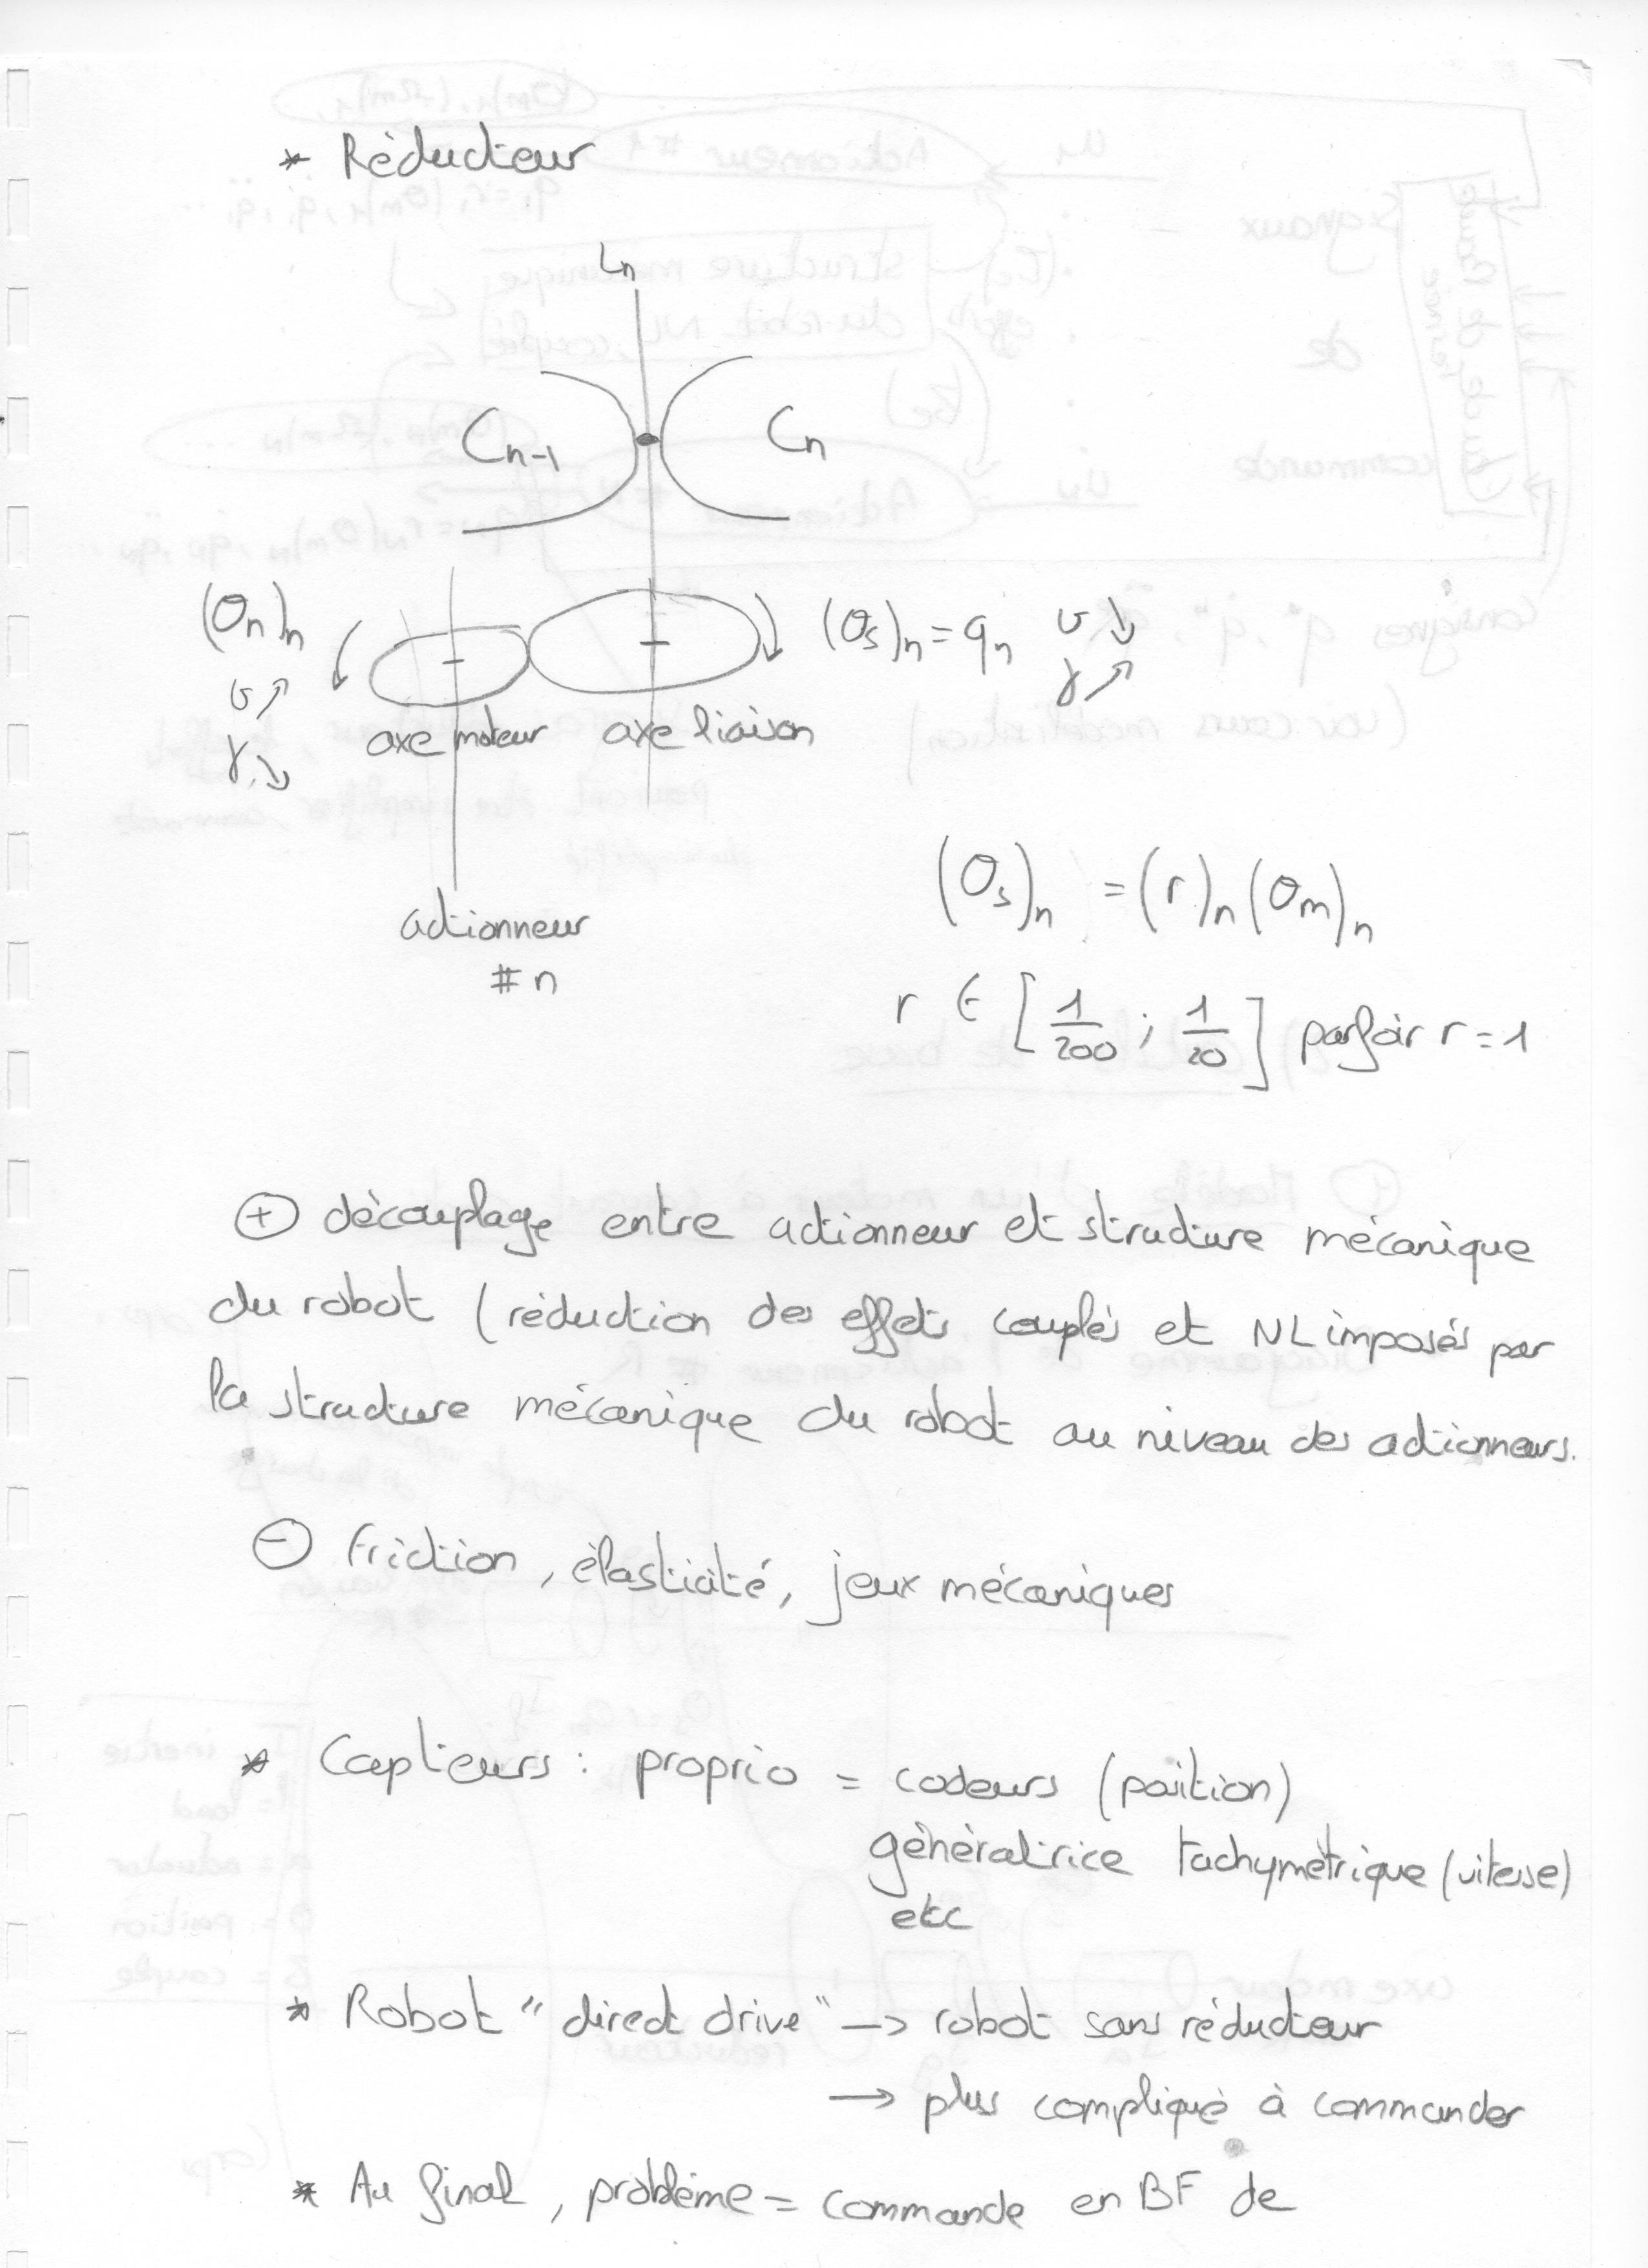 * Réducteur
Ln
Cn-1 Cn
(θn)n (θs)n = qn v ↘
v ↗ γ ↗
γ ↘ axe moteur axe liaison
(θs)n = (r)n (θm)n
actionneur
# n
r ∈ [1/200 ; 1/20] parfois r = 1
⊕ découplage entre actionneur et structure mécanique
du robot (réduction des effets couplés et NL imposés par
la structure mécanique du robot au niveau des actionneurs.
⊖ Friction, élasticité, jeux mécaniques
* Capteurs : proprio = codeurs (position)
génératrice tachymétrique (vitesse)
etc
* Robot "direct drive" → robot sans réducteur
→ plus compliqué à commander
* Au final, problème = commande en BF de